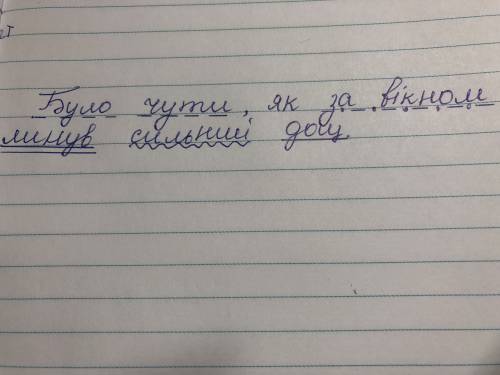 Було чути, як за вікном
линув сильний дощ.